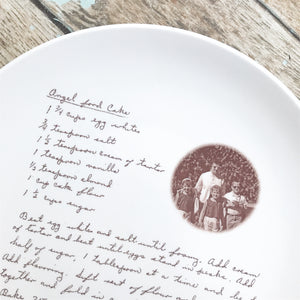 Angel Food Cake
1 3/4 cups egg white
3/4 teaspoon salt
1 1/2 teaspoon cream of tartar
1 teaspoon vanilla
1/2 teaspoon almond
1 cup cake flour
1 1/2 cups sugar
Beat egg white and salt until foamy. Add cream
of tartar and beat until eggs stand in peaks. Add
half of sugar, 1 tablespoon at a time and
Add flavoring. Sift rest of flour and
together and fold in
Bake